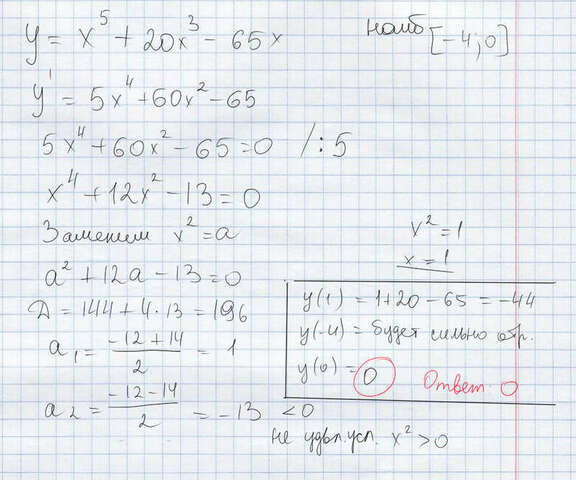 y = x⁵ + 20x³ - 65x наиб [-4; 0]
y' = 5x⁴ + 60x² - 65
5x⁴ + 60x² - 65 = 0 /: 5
x⁴ + 12x² - 13 = 0
Заменим x² = a
a² + 12a - 13 = 0
Д = 144 + 4·13 = 196
a₁ = (-12 + 14)/2 = 1
a₂ = (-12 - 14)/2 = -13 < 0
не удвл. усл. x² > 0
x² = 1
x = 1
y(1) = 1 + 20 - 65 = -44
y(-4) = будет сильно отр.
y(0) = 0 Ответ: 0